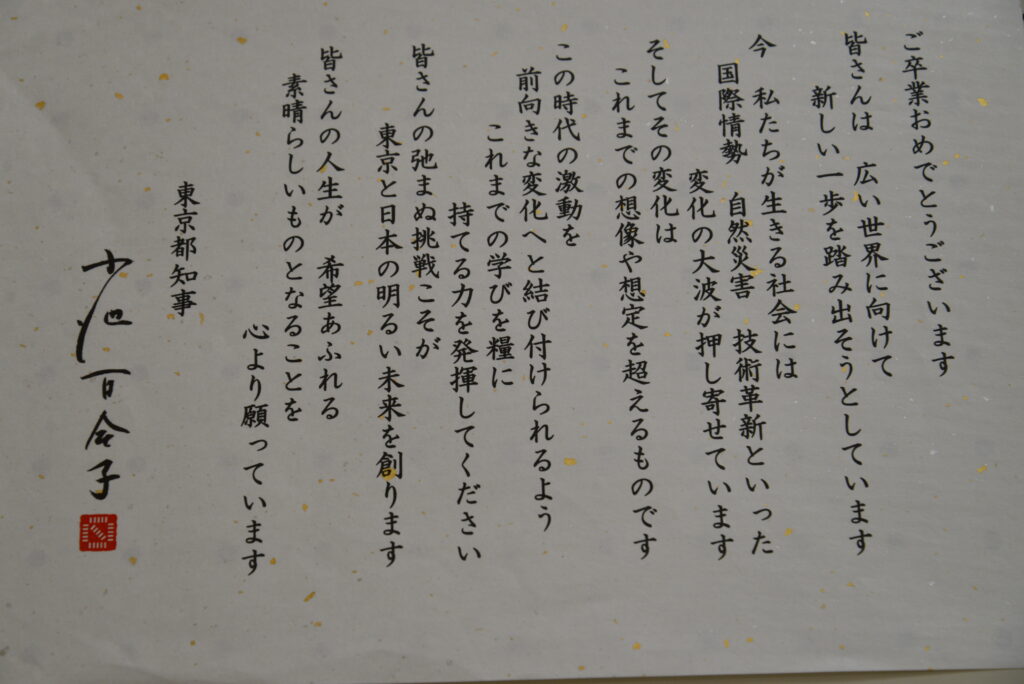 ご卒業おめでとうございます
皆さんは　広い世界に向けて
新しい一歩を踏み出そうとしています
今　私たちが生きる社会には
国際情勢　自然災害　技術革新といった
変化の大波が押し寄せています
そしてその変化は
これまでの想像や想定を超えるものです
この時代の激動を
前向きな変化へと結び付けられるよう
これまでの学びを糧に
持てる力を発揮してください
皆さんの弛まぬ挑戦こそが
東京と日本の明るい未来を創ります
皆さんの人生が　希望あふれる
素晴らしいものとなることを
心より願っています
東京都知事
小池百合子